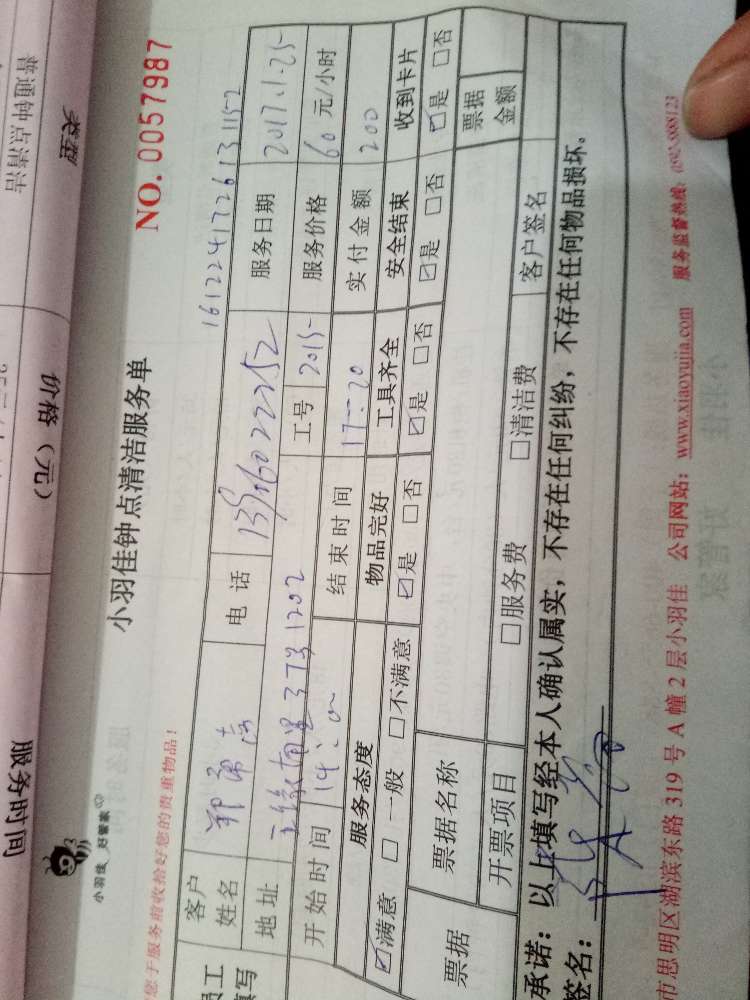 类型
价格（元）
服务时间
普通钟点清洁
小羽佳 好管家
小羽佳钟点清洁服务单
NO. 0057987
您于服务前收拾好您的贵重物品！
1612241726131152
客户姓名 电话 服务日期 2017.1.25
地址 工号 2015 服务价格 60 元/小时
开始时间 14:0 结束时间 17:20 实付金额 200
服务态度 物品完好 工具齐全 安全结束 收到卡片
☑满意 □一般 □不满意 ☑是 □否 ☑是 □否 ☑是 □否 ☑是 □否
票据 票据名称 票据金额
开票项目 □服务费 □清洁费 客户签名
承诺：以上填写经本人确认属实，不存在任何纠纷，不存在任何物品损坏。
签名：
市思明区湖滨东路 319 号 A 幢 2 层小羽佳 公司网站：www.xiaoyujia.com 服务监督热线：